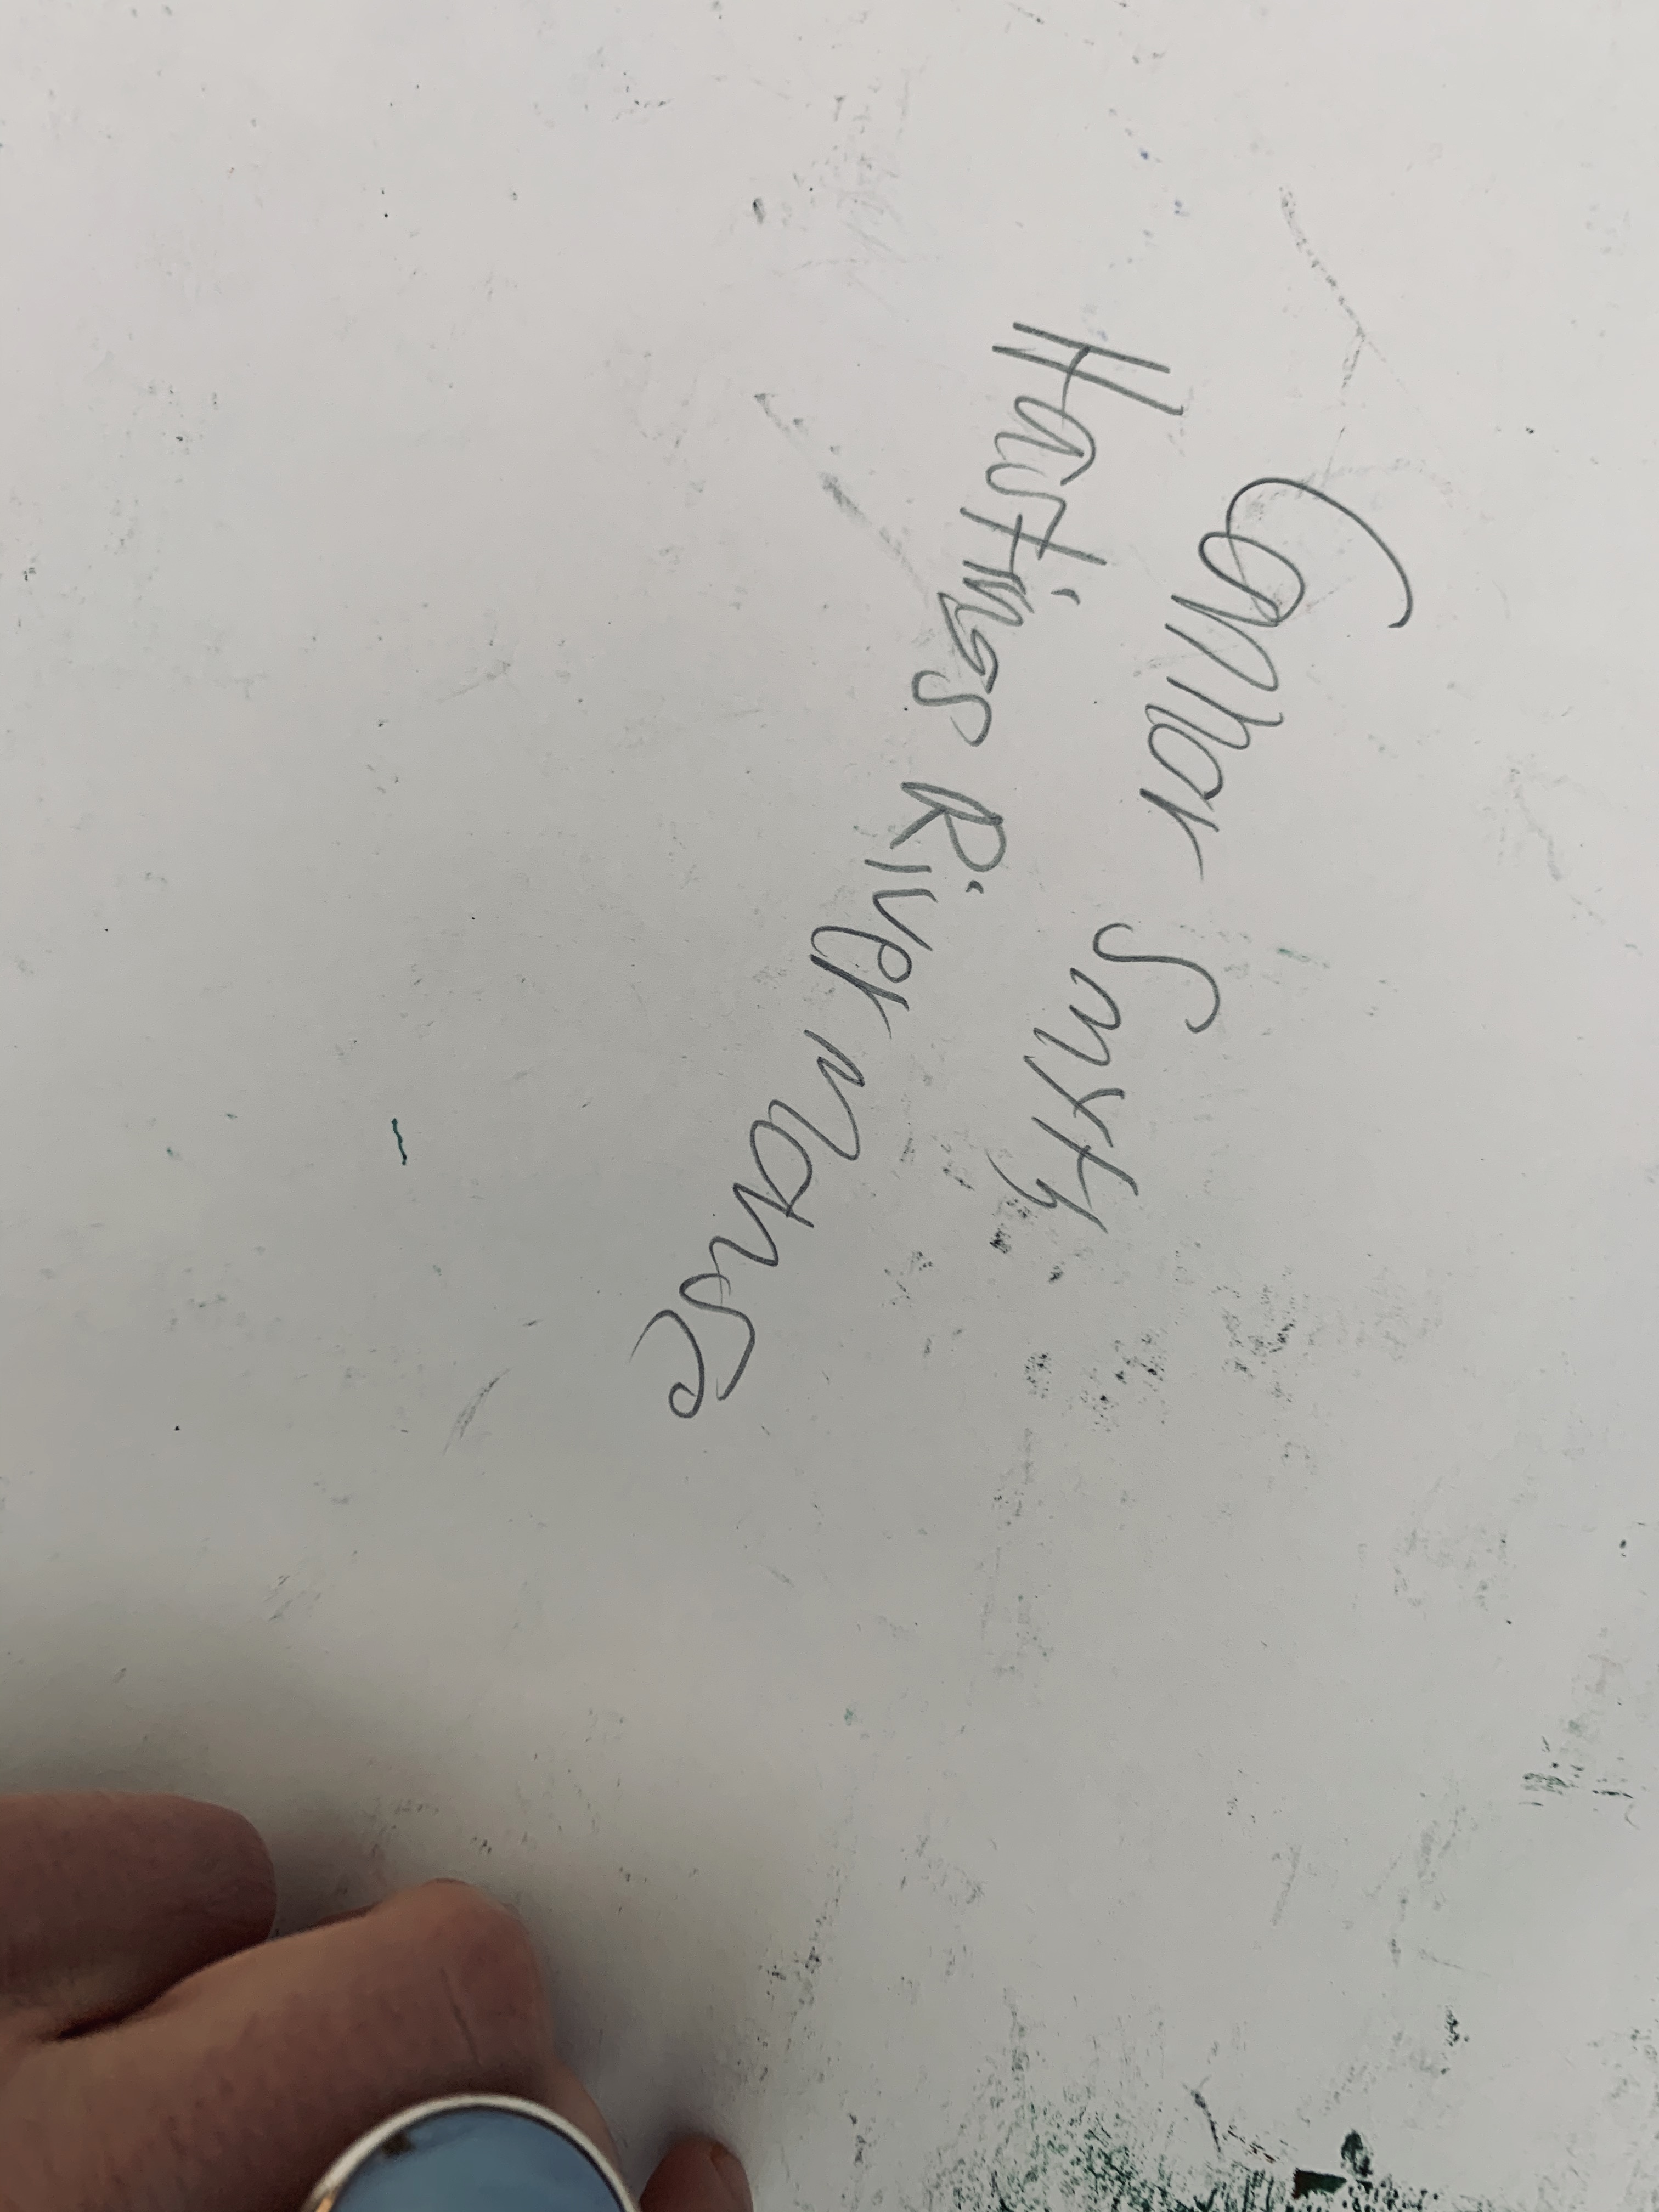 Connor Smyth
Hastings River Mouse